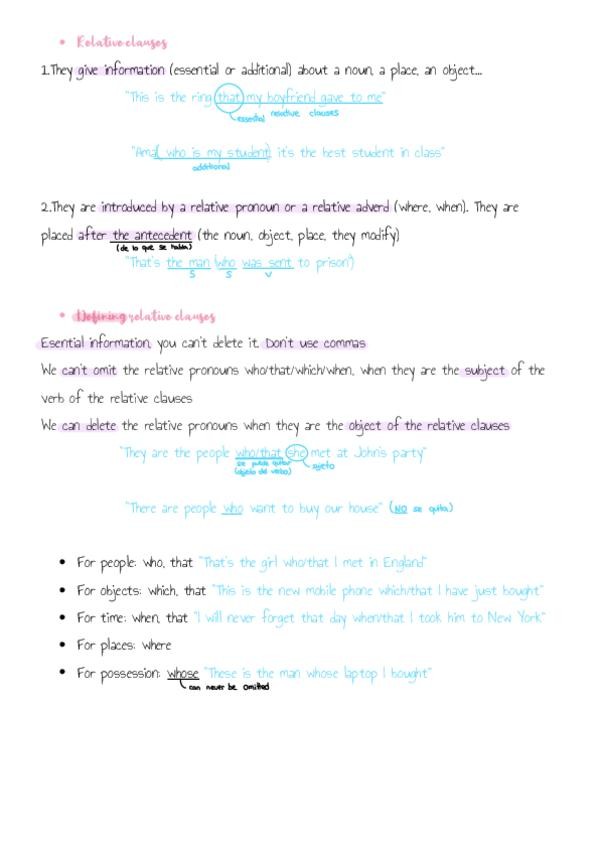 • Relative clauses
1.They give information (essential or additional) about a noun, a place, an object...
"This is the ring that my boyfriend gave to me"
essential relative clauses
"Ama( who is my student) it's the best student in class"
additional
2.They are introduced by a relative pronoun or a relative adverd (where, when). They are
placed after the antecedent (the noun, object, place, they modify)
(de lo que se habla)
"That's the man (who was sent to prison")
S S V
• Defining relative clauses
Esential information, you can't delete it. Don't use commas
We can't omit the relative pronouns who/that/which/when, when they are the subject of the
verb of the relative clauses
We can delete the relative pronouns when they are the object of the relative clauses
"They are the people who/that she met at John's party"
se puede quitar sujeto
(objeto del verbo)
"There are people who want to buy our house" (NO se quita)
• For people: who, that "That's the girl who/that I met in England"
• For objects: which, that "This is the new mobile phone which/that I have just bought"
• For time: when, that "I will never forget that day when/that I took him to New York"
• For places: where
• For possession: whose "These is the man whose laptop I bought"
can never be omitted